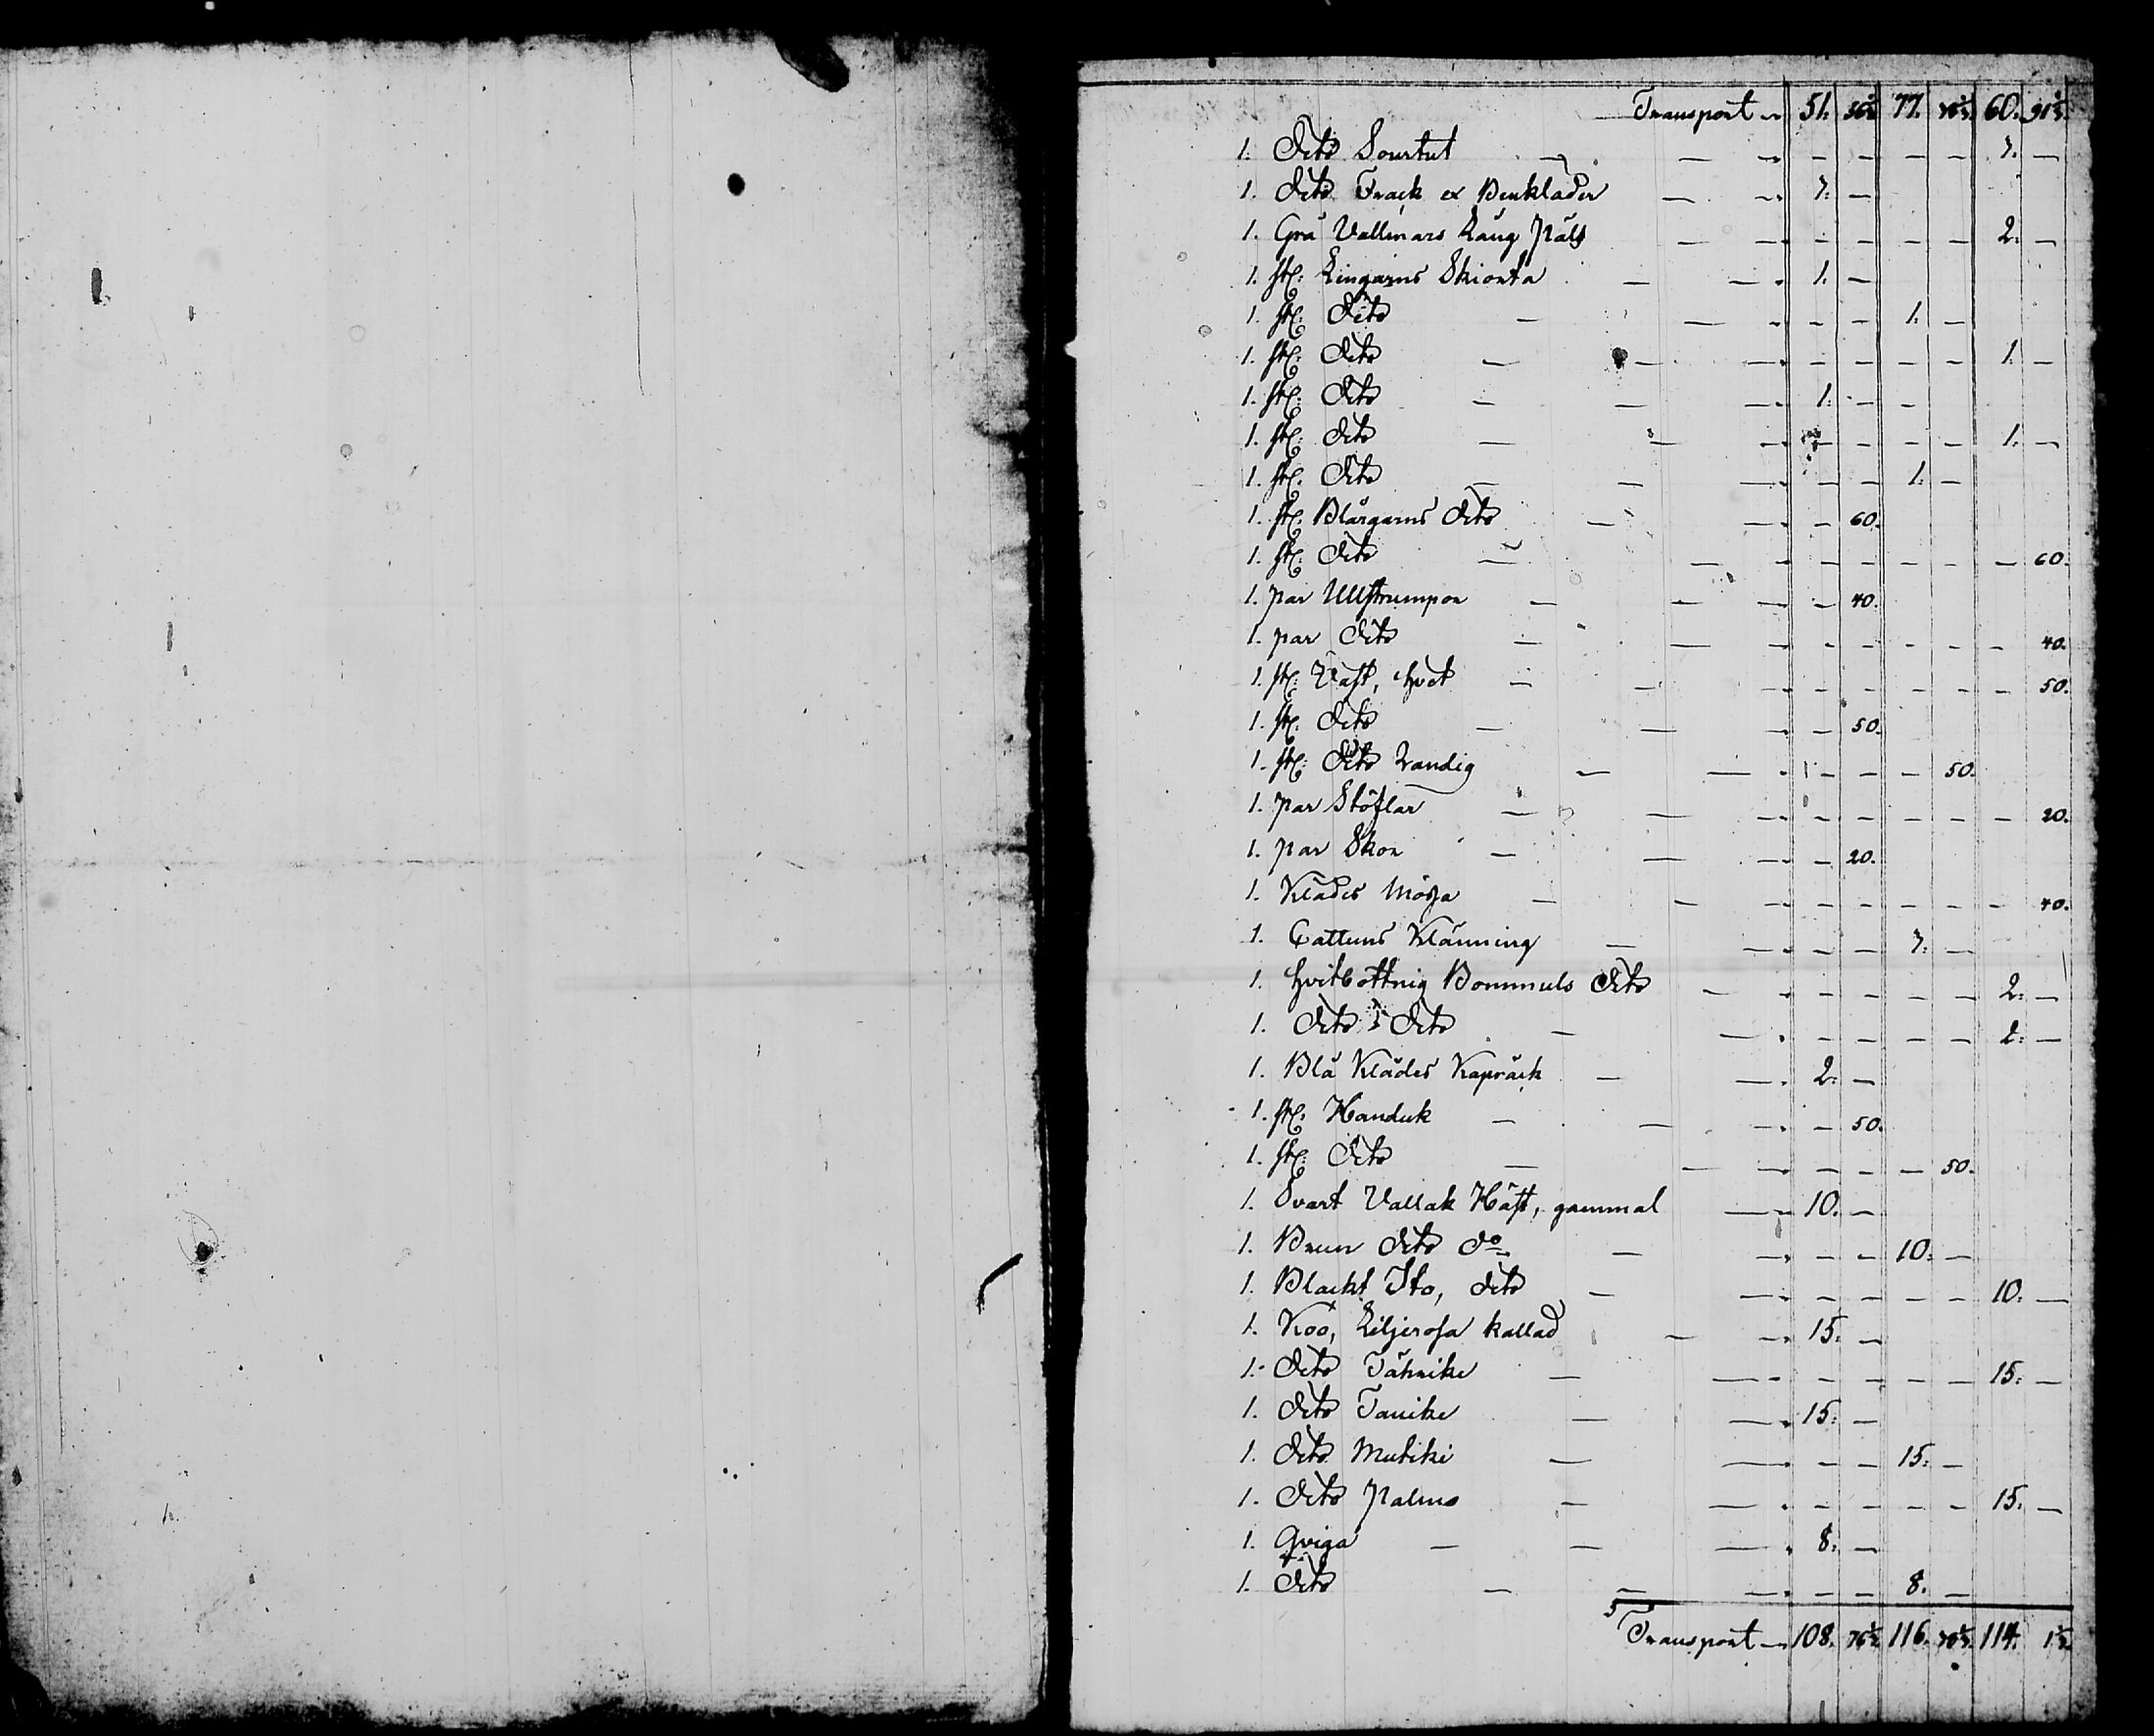 Transport — 51. 56½ 77. 78½. 60. 91½.
1. Dito Sourtut — — — — — — 3. —
1. Dito Frack & Benkläder — — 3. —
1. Grå Vallmars Lång Päls — — — — — — 2. —
1. st: Lingarns Skiorta — — 1. —
1. st: Dito — — — — 1. —
1. st: Dito — — — — — — 1. —
1. st: Dito — — — 1. — —
1. st: Dito — — — — — — 1. —
1. st: Dito — — — — — 1. —
1. st: Blårgarns Dito — — — 60.
1. st: Dito — — — — — — — — 60.
1. par Ullstrumpor — — — — 40.
1. par Dito — — — — — — — 40.
1. st: Väst, hvit — — — — — — — — 50.
1. st: Dito — — — — 50.
1. st: Dito Randig — — — — — 50.
1. par Stöflar — — — — — — — — 20.
1. par Skor — — — — 20.
1. Klädes Mössa — — — — — — — — 40.
1. Cattuns Klänning — — — — 3. —
1. hvitbottnig Bommuls Dito — — — — — 2. —
1. Dito Dito — — — — — — 2. —
1. Blå Klädes Kapråck — — 2. —
1. st: Handuk — — — — 50.
1. st: Dito — — — — — — 50.
1. Svart Vallak Häst, gammal — 10. —
1. Brun Dito do — — — — 10. —
1. Blackt Sto, Dito — — — — — — 10. —
1. Koo, Liljerosa kallad — — 15. —
1. Dito Tähnike — — — — — — 15. —
1. Dito Tanike — — 15. —
1. Dito Mutiki — — — — 15. —
1. Dito Palmo — — — — — — 15. —
1. Qviga — — — 8. —
1. Dito — — — — — 8. —
Transport — 108. 76½ 116. 78½. 114. 1½